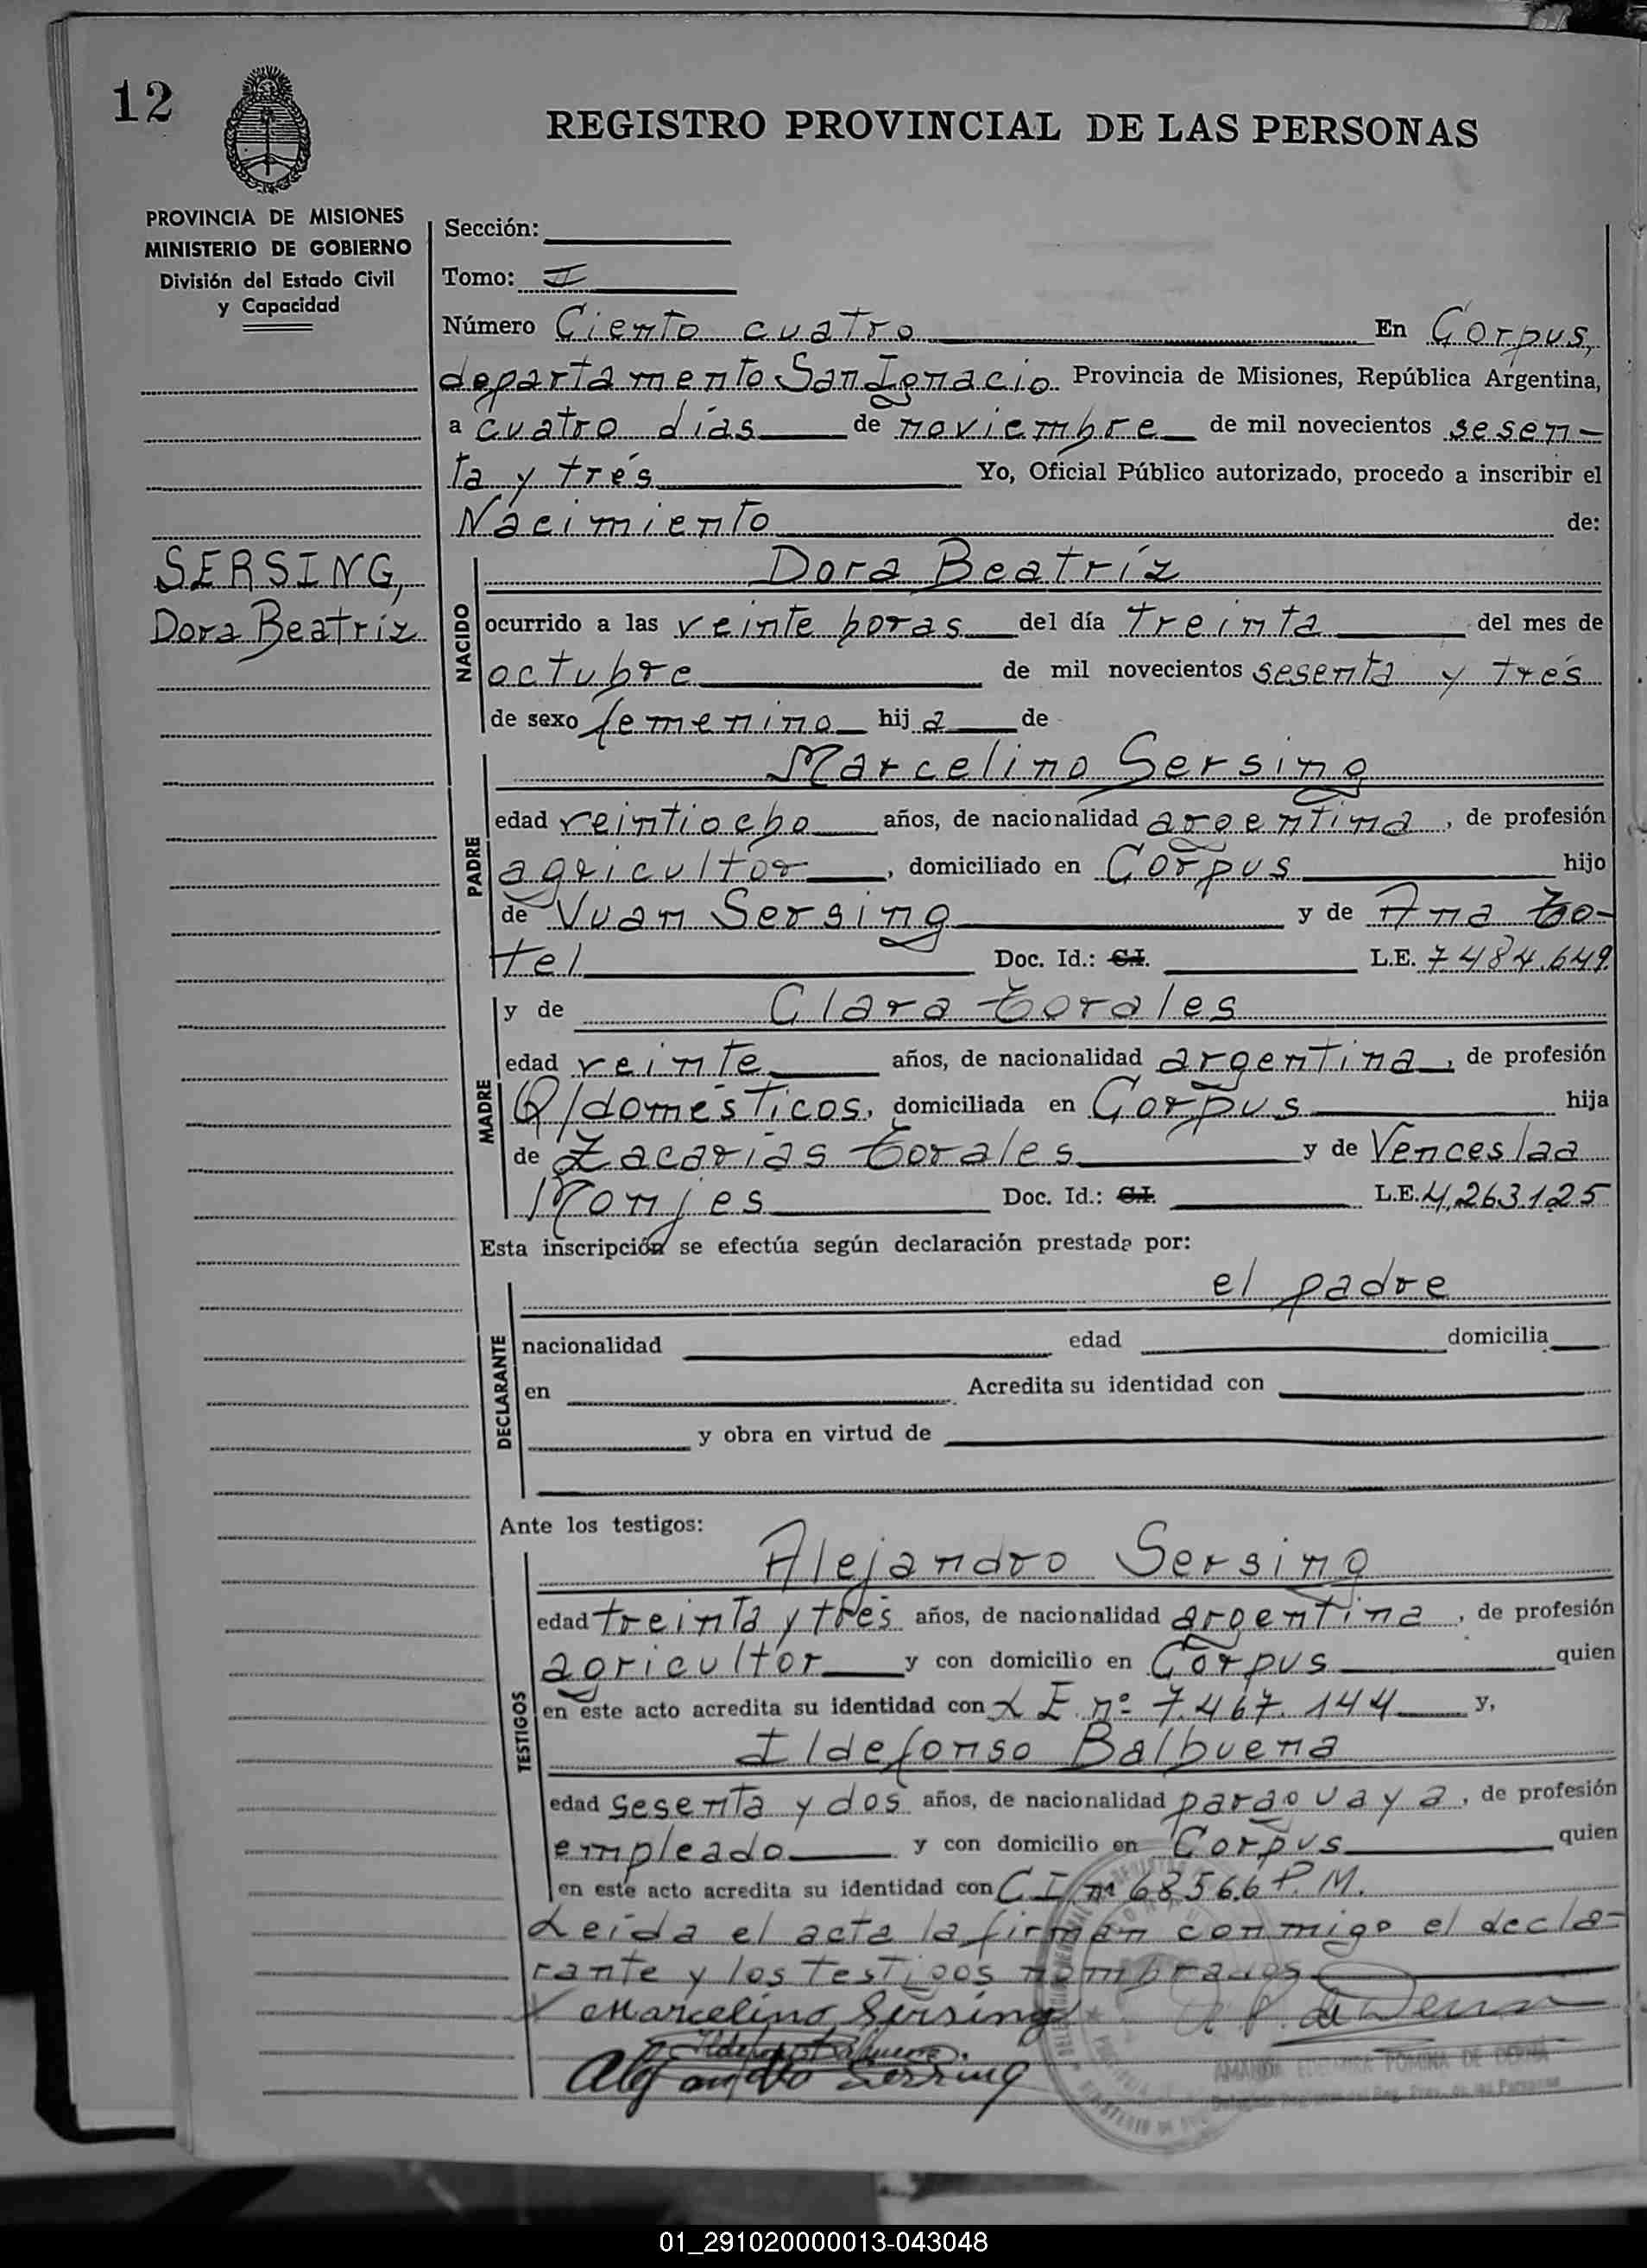 12
REGISTRO PROVINCIAL DE LAS PERSONAS
PROVINCIA DE MISIONES
MINISTERIO DE GOBIERNO
División del Estado Civil
y Capacidad
SERSING,
Dora Beatríz
Sección:
Tomo: II
Número Ciento cuatro En Corpus,
departamento San Ignacio Provincia de Misiones, República Argentina,
a cuatro días de noviembre de mil novecientos sesen-
ta y trés Yo, Oficial Público autorizado, procedo a inscribir el
Nacimiento de:
NACIDO
Dora Beatríz
ocurrido a las veinte horas del día treinta del mes de
octubre de mil novecientos sesenta y trés
de sexo femenino hija de
PADRE
Marcelino Sersing
edad veintiocho años, de nacionalidad argentina, de profesión
agricultor, domiciliado en Corpus hijo
de Juan Sersing y de Ana Zo-
tel Doc. Id.: C.I. L.E. 7484.649
MADRE
y de Clara Torales
edad veinte años, de nacionalidad argentina, de profesión
Q/domésticos, domiciliada en Corpus hija
de Zacarías Torales y de Venceslaa
Monjes Doc. Id.: C.I. L.E. 4,263.125
Esta inscripción se efectúa según declaración prestada por:
DECLARANTE
el padre
nacionalidad edad domicilia
en Acredita su identidad con
y obra en virtud de
Ante los testigos:
TESTIGOS
Alejandro Sersing
edad treinta y trés años, de nacionalidad argentina, de profesión
agricultor y con domicilio en Corpus quien
en este acto acredita su identidad con L E. nº 7.467.144 y,
Ildefonso Balbuena
edad sesenta y dos años, de nacionalidad paraguaya, de profesión
empleado y con domicilio en Corpus quien
en este acto acredita su identidad con C I nº 68566 P. M.
Leída el acta la firman conmigo el decla-
rante y los testigos nombrados
x Marcelino Sersing
Alejandro Sersing
01_291020000013-043048